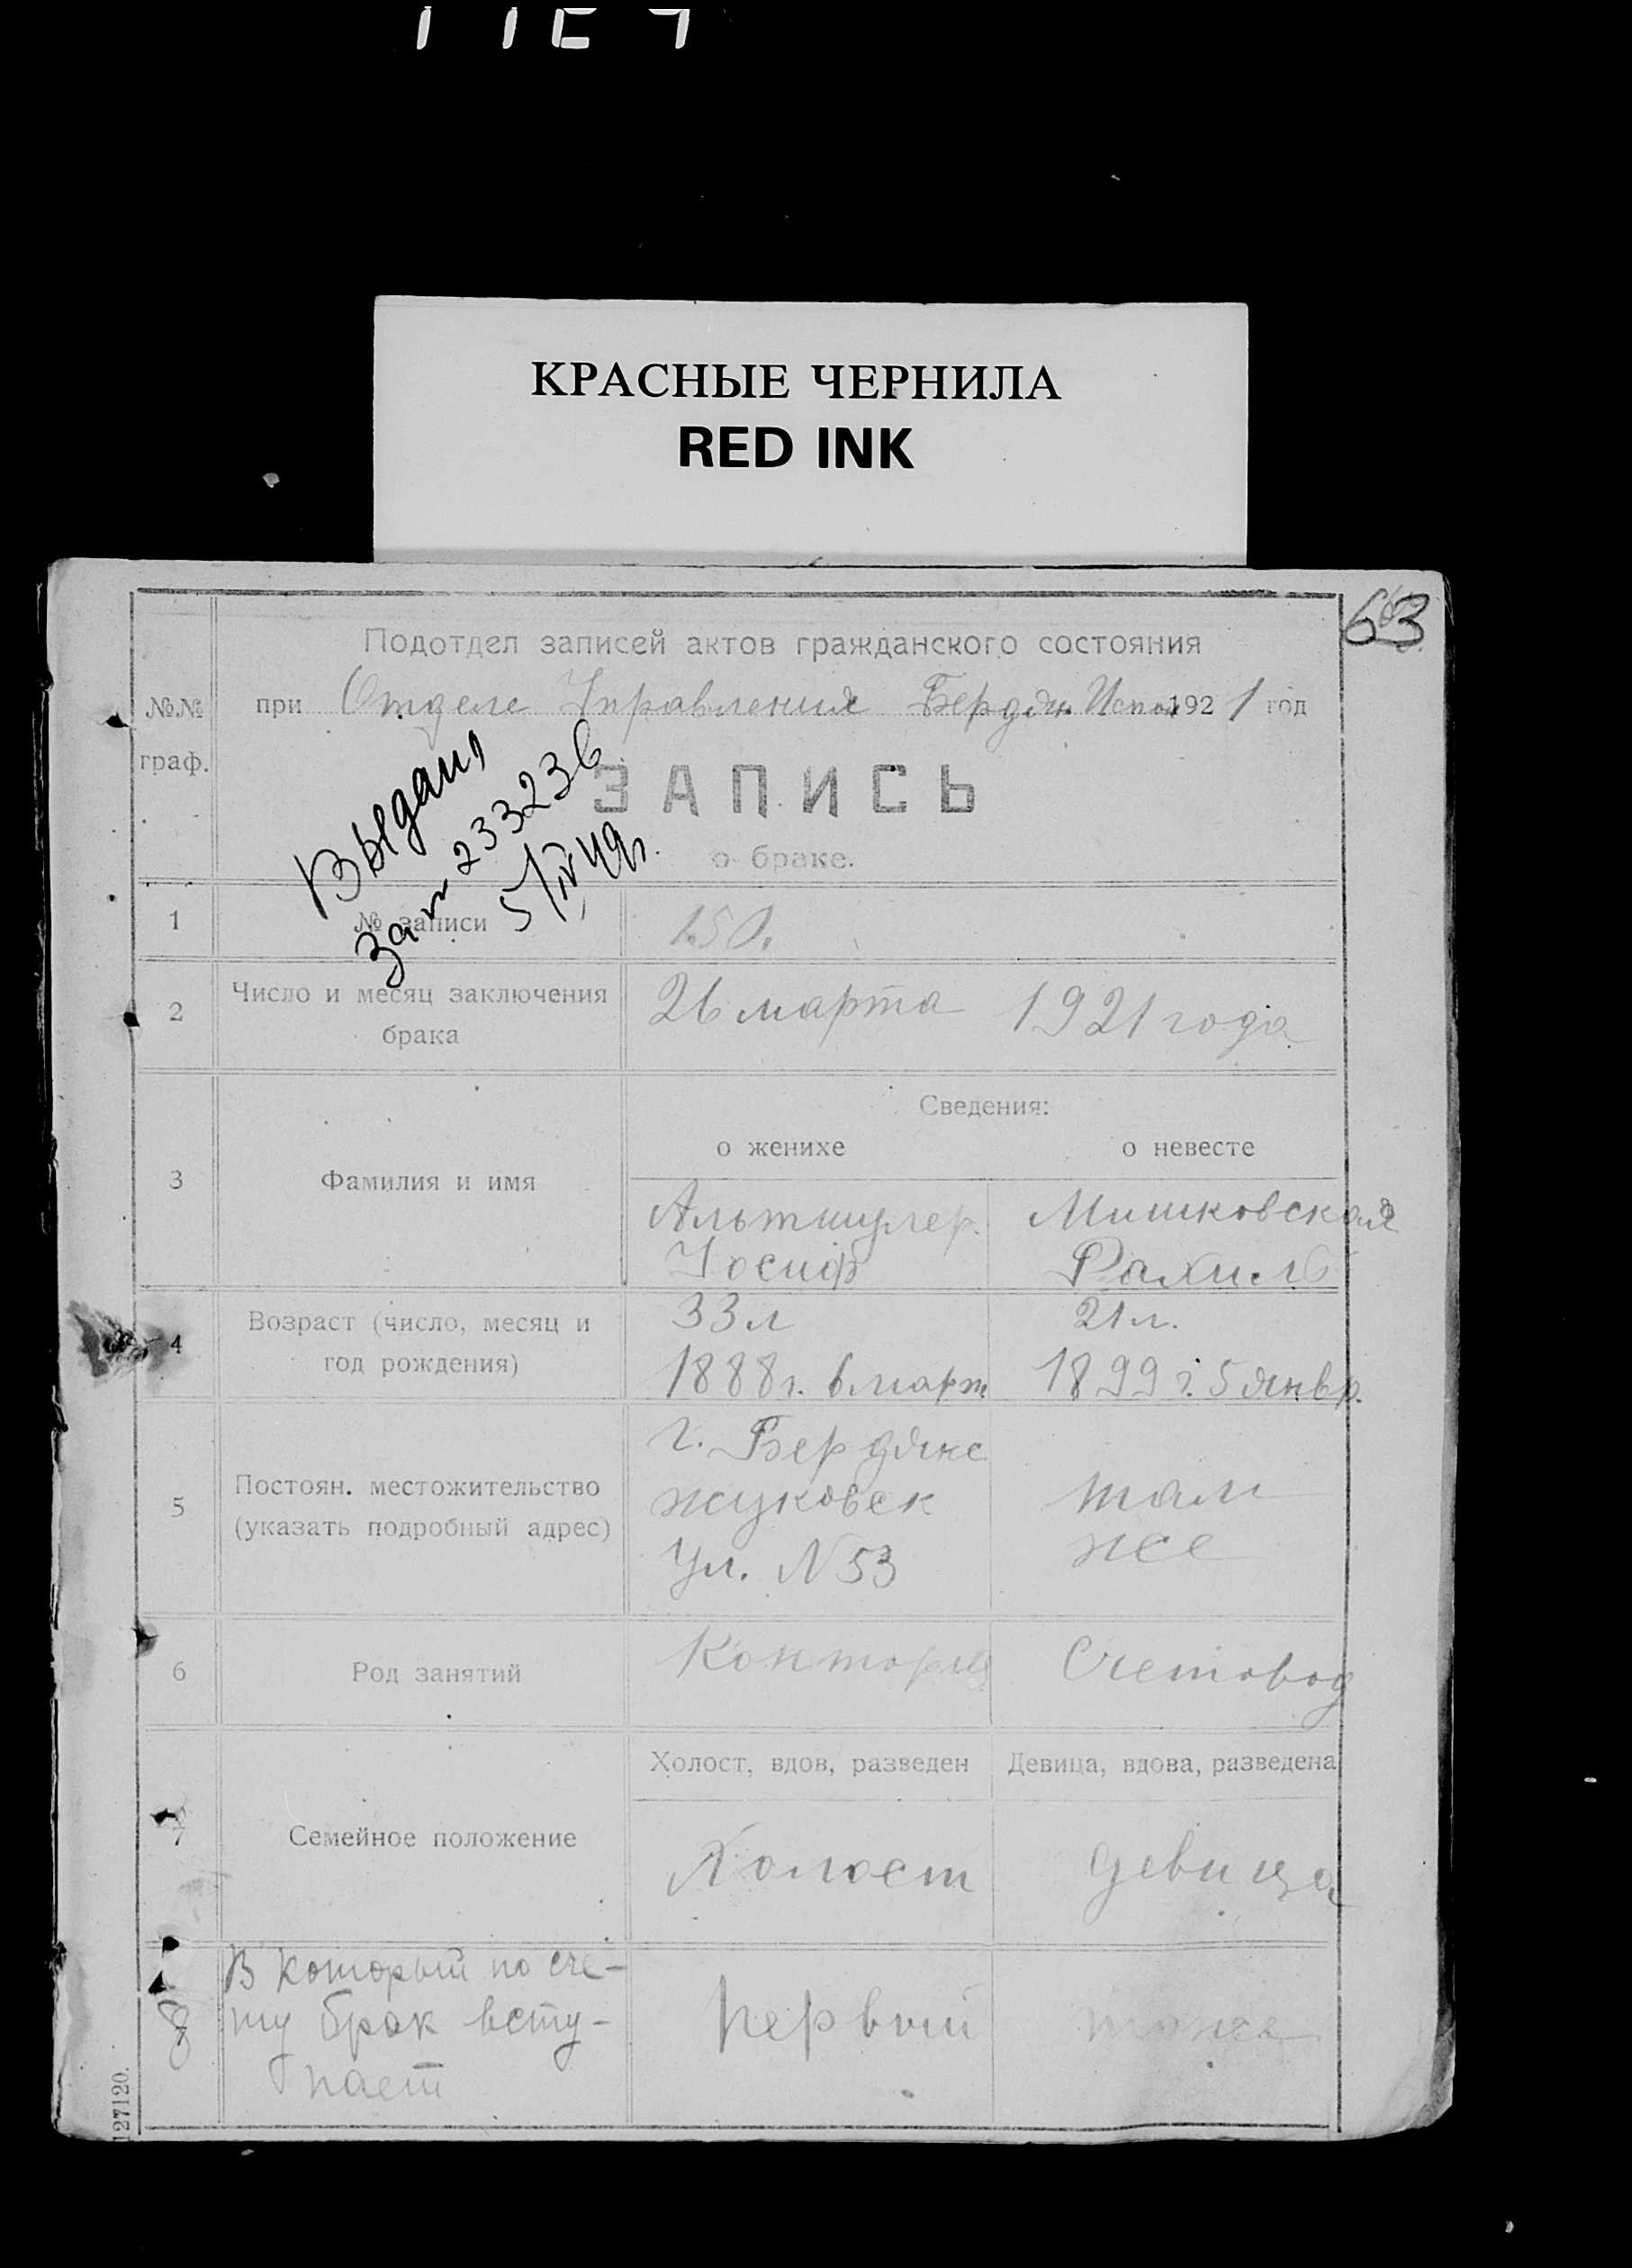 КРАСНЫЕ ЧЕРНИЛА
RED INK
63
Подотдел записей актов гражданского состояния
№№ граф.
при Отделе Управления Бердян. Испол 1921 год
ЗАПИСЬ
о браке.
Выдан
За № 233236
5/IV 49г.
1 № записи 150.
2 Число и месяц заключения брака 26 марта 1921 года
Сведения:
о женихе о невесте
3 Фамилия и имя
Альтшулер. Мишковская
Иосиф Рахиль
4 Возраст (число, месяц и год рождения)
33 л 21 л.
1888 г. 6 март 1899 г. 5 янвр.
5 Постоян. местожительство (указать подробный адрес)
г. Бердянс
жуковск там
ул. N 53 же
6 Род занятий Конторщ Счетовод
Холост, вдов, разведен Девица, вдова, разведена
7 Семейное положение Холост девица
8 В который по сче-
ту брак всту-
пает
первый тоже
127120.